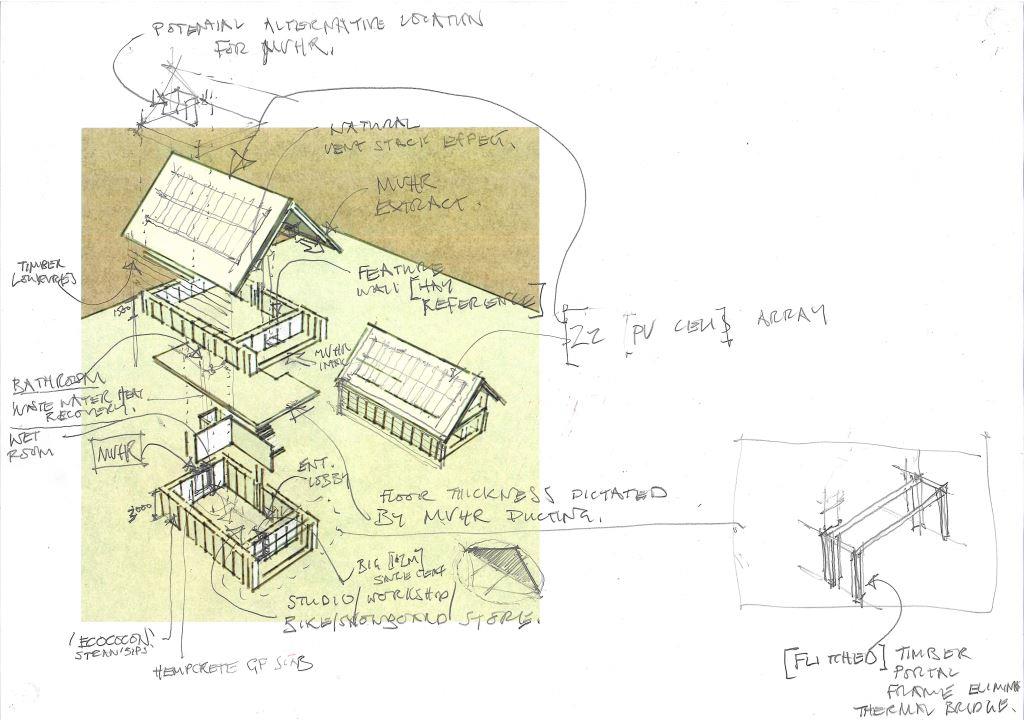 POTENTIAL ALTERNATIVE LOCATION
FOR MVHR.
NATURAL
VENT STACK EFFECT.
MVHR
EXTRACT.
TIMBER
[LOUVRES]
FEATURE
WALL [HAY
REFERENCE]
1500
22 [PV CELLS] ARRAY
MVHR
BATHROOM
WASTE WATER HEAT
RECOVERY.
WET
ROOM
MVHR
ENT.
LOBBY
3000
FLOOR THICKNESS DICTATED
BY MVHR DUCTING.
BIG [12M]
STUDIO/WORKSHOP/
BIKE/SNOWBOARD STORE.
'ECOCOCON'
STRAW SIPS
HEMPCRETE GF SLAB
[FLITCHED] TIMBER
PORTAL
FRAME ELIMIN
THERMAL BRIDGE.